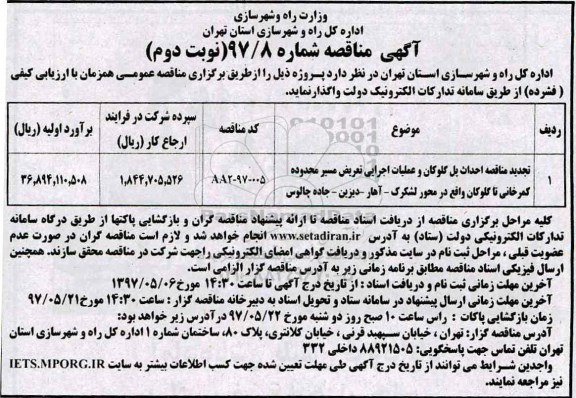 وزارت راه وشهرسازی
اداره کل راه و شهرسازی استان تهران
آگهی مناقصه شماره ۹۷/۸(نوبت دوم)
اداره کل راه و شهرسازی استان تهران در نظر دارد پروژه ذیل را ازطریق برگزاری مناقصه عمومی همزمان با ارزیابی کیفی
( فشرده) از طریق سامانه تدارکات الکترونیک دولت واگذارنماید.
ردیف موضوع کد مناقصه سپرده شرکت در فرایند ارجاع کار (ریال) برآورد اولیه (ریال)
۱ تجدید مناقصه احداث پل گلوکان و عملیات اجرایی تعریض مسیر محدوده
کمرخانی تا گلوکان واقع در محور لشگرک - آهار -دیزین - جاده چالوس
AA۲-۹۷-۰۰۵ ۱,۸۴۴,۷۰۵,۵۲۶ ۳۶,۸۹۴,۱۱۰,۵۰۸
کلیه مراحل برگزاری مناقصه از دریافت اسناد مناقصه تا ارائه پیشنهاد مناقصه گران و بازگشایی پاکتها از طریق درگاه سامانه
تدارکات الکترونیکی دولت (ستاد) به آدرس www.setadiran.ir انجام خواهد شد و لازم است مناقصه گران در صورت عدم
عضویت قبلی ، مراحل ثبت نام در سایت مذکور و دریافت گواهی امضای الکترونیکی راجهت شرکت در مناقصه محقق سازند. همچنین
ارسال فیزیکی اسناد مناقصه مطابق برنامه زمانی زیر به آدرس مناقصه گزار الزامی است.
آخرین مهلت زمانی ثبت نام و دریافت اسناد : از تاریخ درج آگهی تا ساعت ۱۴:۳۰ مورخ ۱۳۹۷/۰۵/۰۶
آخرین مهلت زمانی ارسال پیشنهاد در سامانه ستاد و تحویل اسناد به دبیرخانه مناقصه گزار : ساعت ۱۴:۳۰ مورخ ۹۷/۰۵/۲۱
زمان بازگشایی پاکات : راس ساعت ۱۰ صبح روز دو شنبه مورخ ۹۷/۰۵/۲۲ درآدرس زیر خواهد بود:
آدرس مناقصه گزار: تهران ، خیابان سپهبد قرنی ، خیابان کلانتری، پلاک ۸۰، ساختمان شماره ۱ اداره کل راه و شهرسازی استان
تهران تلفن تماس جهت پاسخگویی: ۸۸۹۲۱۵۰۵ داخلی ۳۳۲
واجدین شرایط می توانند از تاریخ درج آگهی طی مهلت تعیین شده جهت کسب اطلاعات بیشتر به سایت IETS.MPORG.IR
نیز مراجعه نمایند.